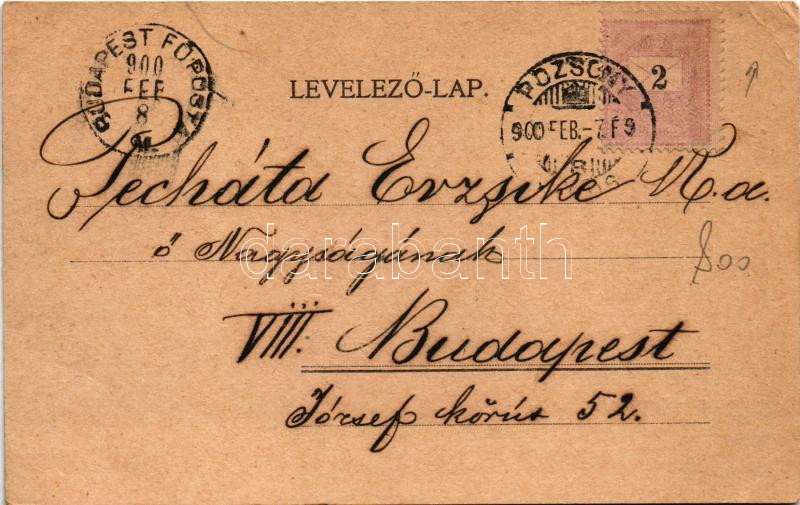 BUDAPEST FŐPOSTA
900
FEB
8
LEVELEZŐ-LAP.
POZSONY
900 FEB.-7. F9
2
Pecháta Erzsike N.a.
ő Nagyságának
darabanth
800
VIII. Budapest
József körút 52.